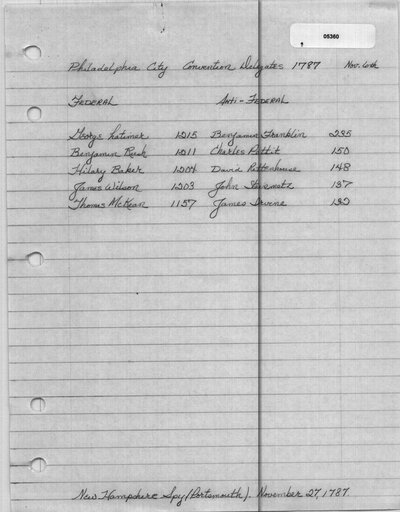 05360
Philadelphia City Convention Delegates 1787 Nov. 6th
Federal Anti-Federal
George Latimer 1215 Benjamin Franklin 235
Benjamin Rush 1211 Charles Pettit 150
Hilary Baker 1204 David Rittenhouse 148
James Wilson 1203 John Steinmetz 137
Thomas McKean 1157 James Irvine 132
New Hampshire Spy (Portsmouth). November 27, 1787.